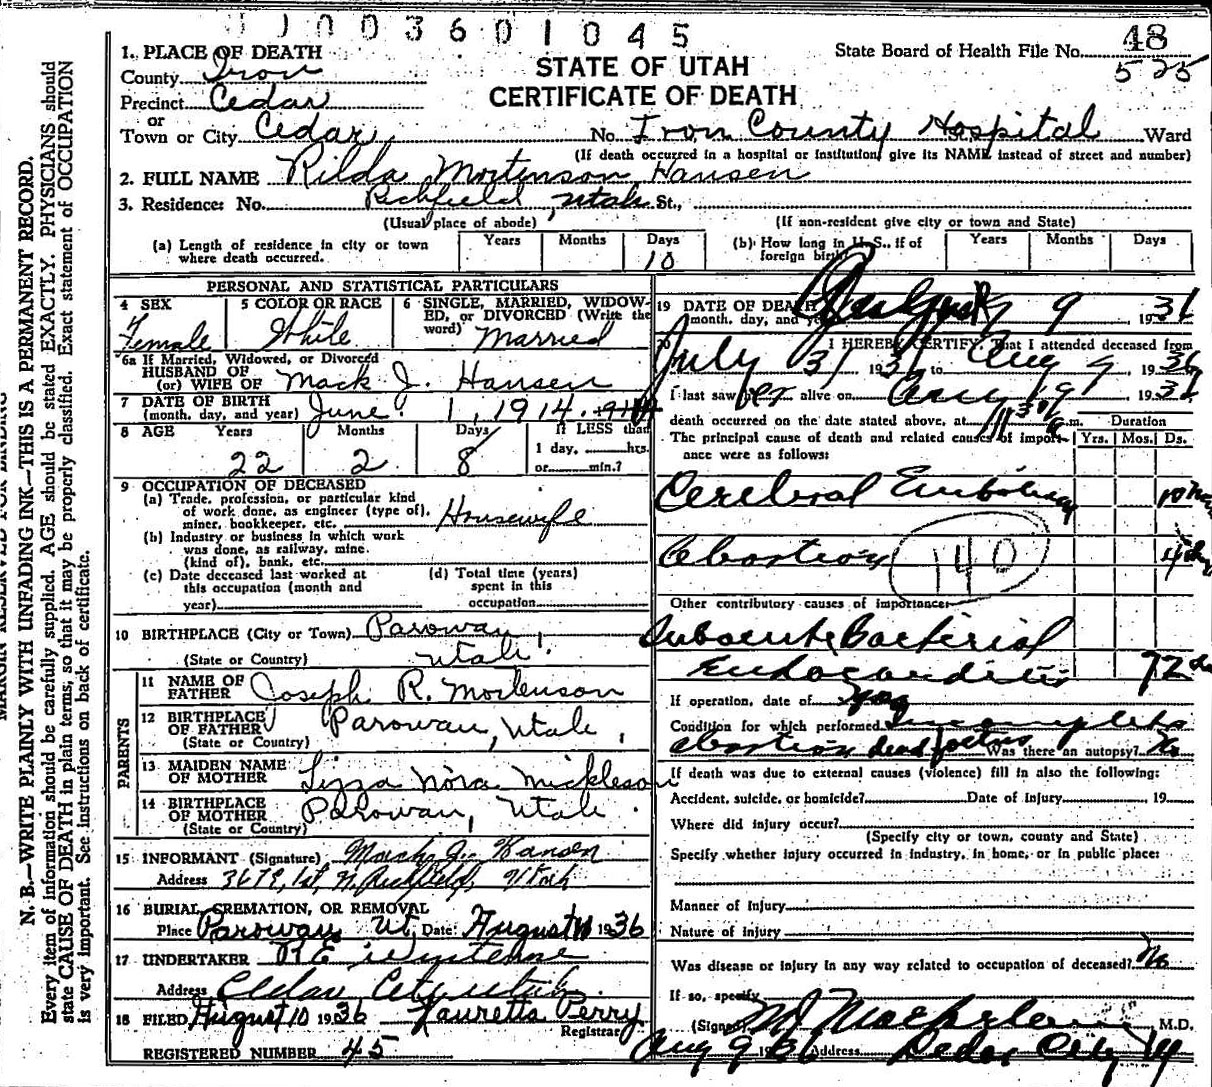 003601045
1. PLACE OF DEATH
State Board of Health File No. 48
525
County Iron
STATE OF UTAH
Precinct Cedar
CERTIFICATE OF DEATH
or
Town or City Cedar No. Iron County Hospital St., Ward
(If death occurred in a hospital or institution, give its NAME instead of street and number)
2. FULL NAME Rilda Mortenson Hansen
3. Residence: No. Richfield, Utah St.,
(Usual place of abode) (If non-resident give city or town and State)
(a) Length of residence in city or town where death occurred. Years Months Days 10
(b) How long in U. S., if of foreign birth Years Months Days
PERSONAL AND STATISTICAL PARTICULARS
4 SEX Female
5 COLOR OR RACE White
6 SINGLE, MARRIED, WIDOWED, or DIVORCED (Write the word) Married
6a If Married, Widowed, or Divorced
HUSBAND OF
(or) WIFE OF Mack J. Hansen
7 DATE OF BIRTH
(month, day, and year) June 1, 1914.
8 AGE Years 22 Months 2 Days 8 If LESS than 1 day, hrs. or min.?
9 OCCUPATION OF DECEASED
(a) Trade, profession, or particular kind
of work done, as engineer (type of),
miner, bookkeeper, etc. Housewife
(b) Industry or business in which work
was done, as railway, mine.
(kind of), bank, etc.
(c) Date deceased last worked at
this occupation (month and
year)
(d) Total time (years)
spent in this
occupation
10 BIRTHPLACE (City or Town) Parowan,
(State or Country) Utah.
PARENTS
11 NAME OF
FATHER Joseph R. Mortenson
12 BIRTHPLACE
OF FATHER Parowan, Utah,
(State or Country)
13 MAIDEN NAME
OF MOTHER Lizza Nora Mickleson
14 BIRTHPLACE
OF MOTHER Parowan, Utah.
(State or Country)
15 INFORMANT (Signature) Mack J. Hansen
Address Richfield, Utah
16 BURIAL, CREMATION, OR REMOVAL
Place Parowan Ut. Date August 1936
17 UNDERTAKER
Address Cedar City, Utah.
18 FILED August 10 1936 Lauretta Perry
Registrar
REGISTERED NUMBER 45
19 DATE OF DEATH
(month, day, and year) 9, 1936
20 I HEREBY CERTIFY, That I attended deceased from
July 31 1936 to Aug 9, 1936
I last saw her alive on Aug 9, 1936
death occurred on the date stated above, at m.
The principal cause of death and related causes of importance were as follows:
Duration
Yrs. Mos. Ds.
Cerebral Embolism 10
Abortion 140
Other contributory causes of importance:
Subacute Bacterial
Endocarditis 72
If operation, date of
Condition for which performed Incomplete
abortion dead fetus Was there an autopsy? No
If death was due to external causes (violence) fill in also the following:
Accident, suicide, or homicide? Date of injury 19
Where did injury occur?
(Specify city or town, county and State)
Specify whether injury occurred in industry, in home, or in public place:
Manner of Injury
Nature of injury
Was disease or injury in any way related to occupation of deceased? No
If so, specify
(Signed) M J Macfarlane M.D.
Aug 9 1936 Address Cedar City
N. B.—WRITE PLAINLY WITH UNFADING INK—THIS IS A PERMANENT RECORD.
Every item of information should be carefully supplied. AGE should be stated EXACTLY. PHYSICIANS should
state CAUSE OF DEATH in plain terms, so that it may be properly classified. Exact statement of OCCUPATION
is very important. See instructions on back of certificate.